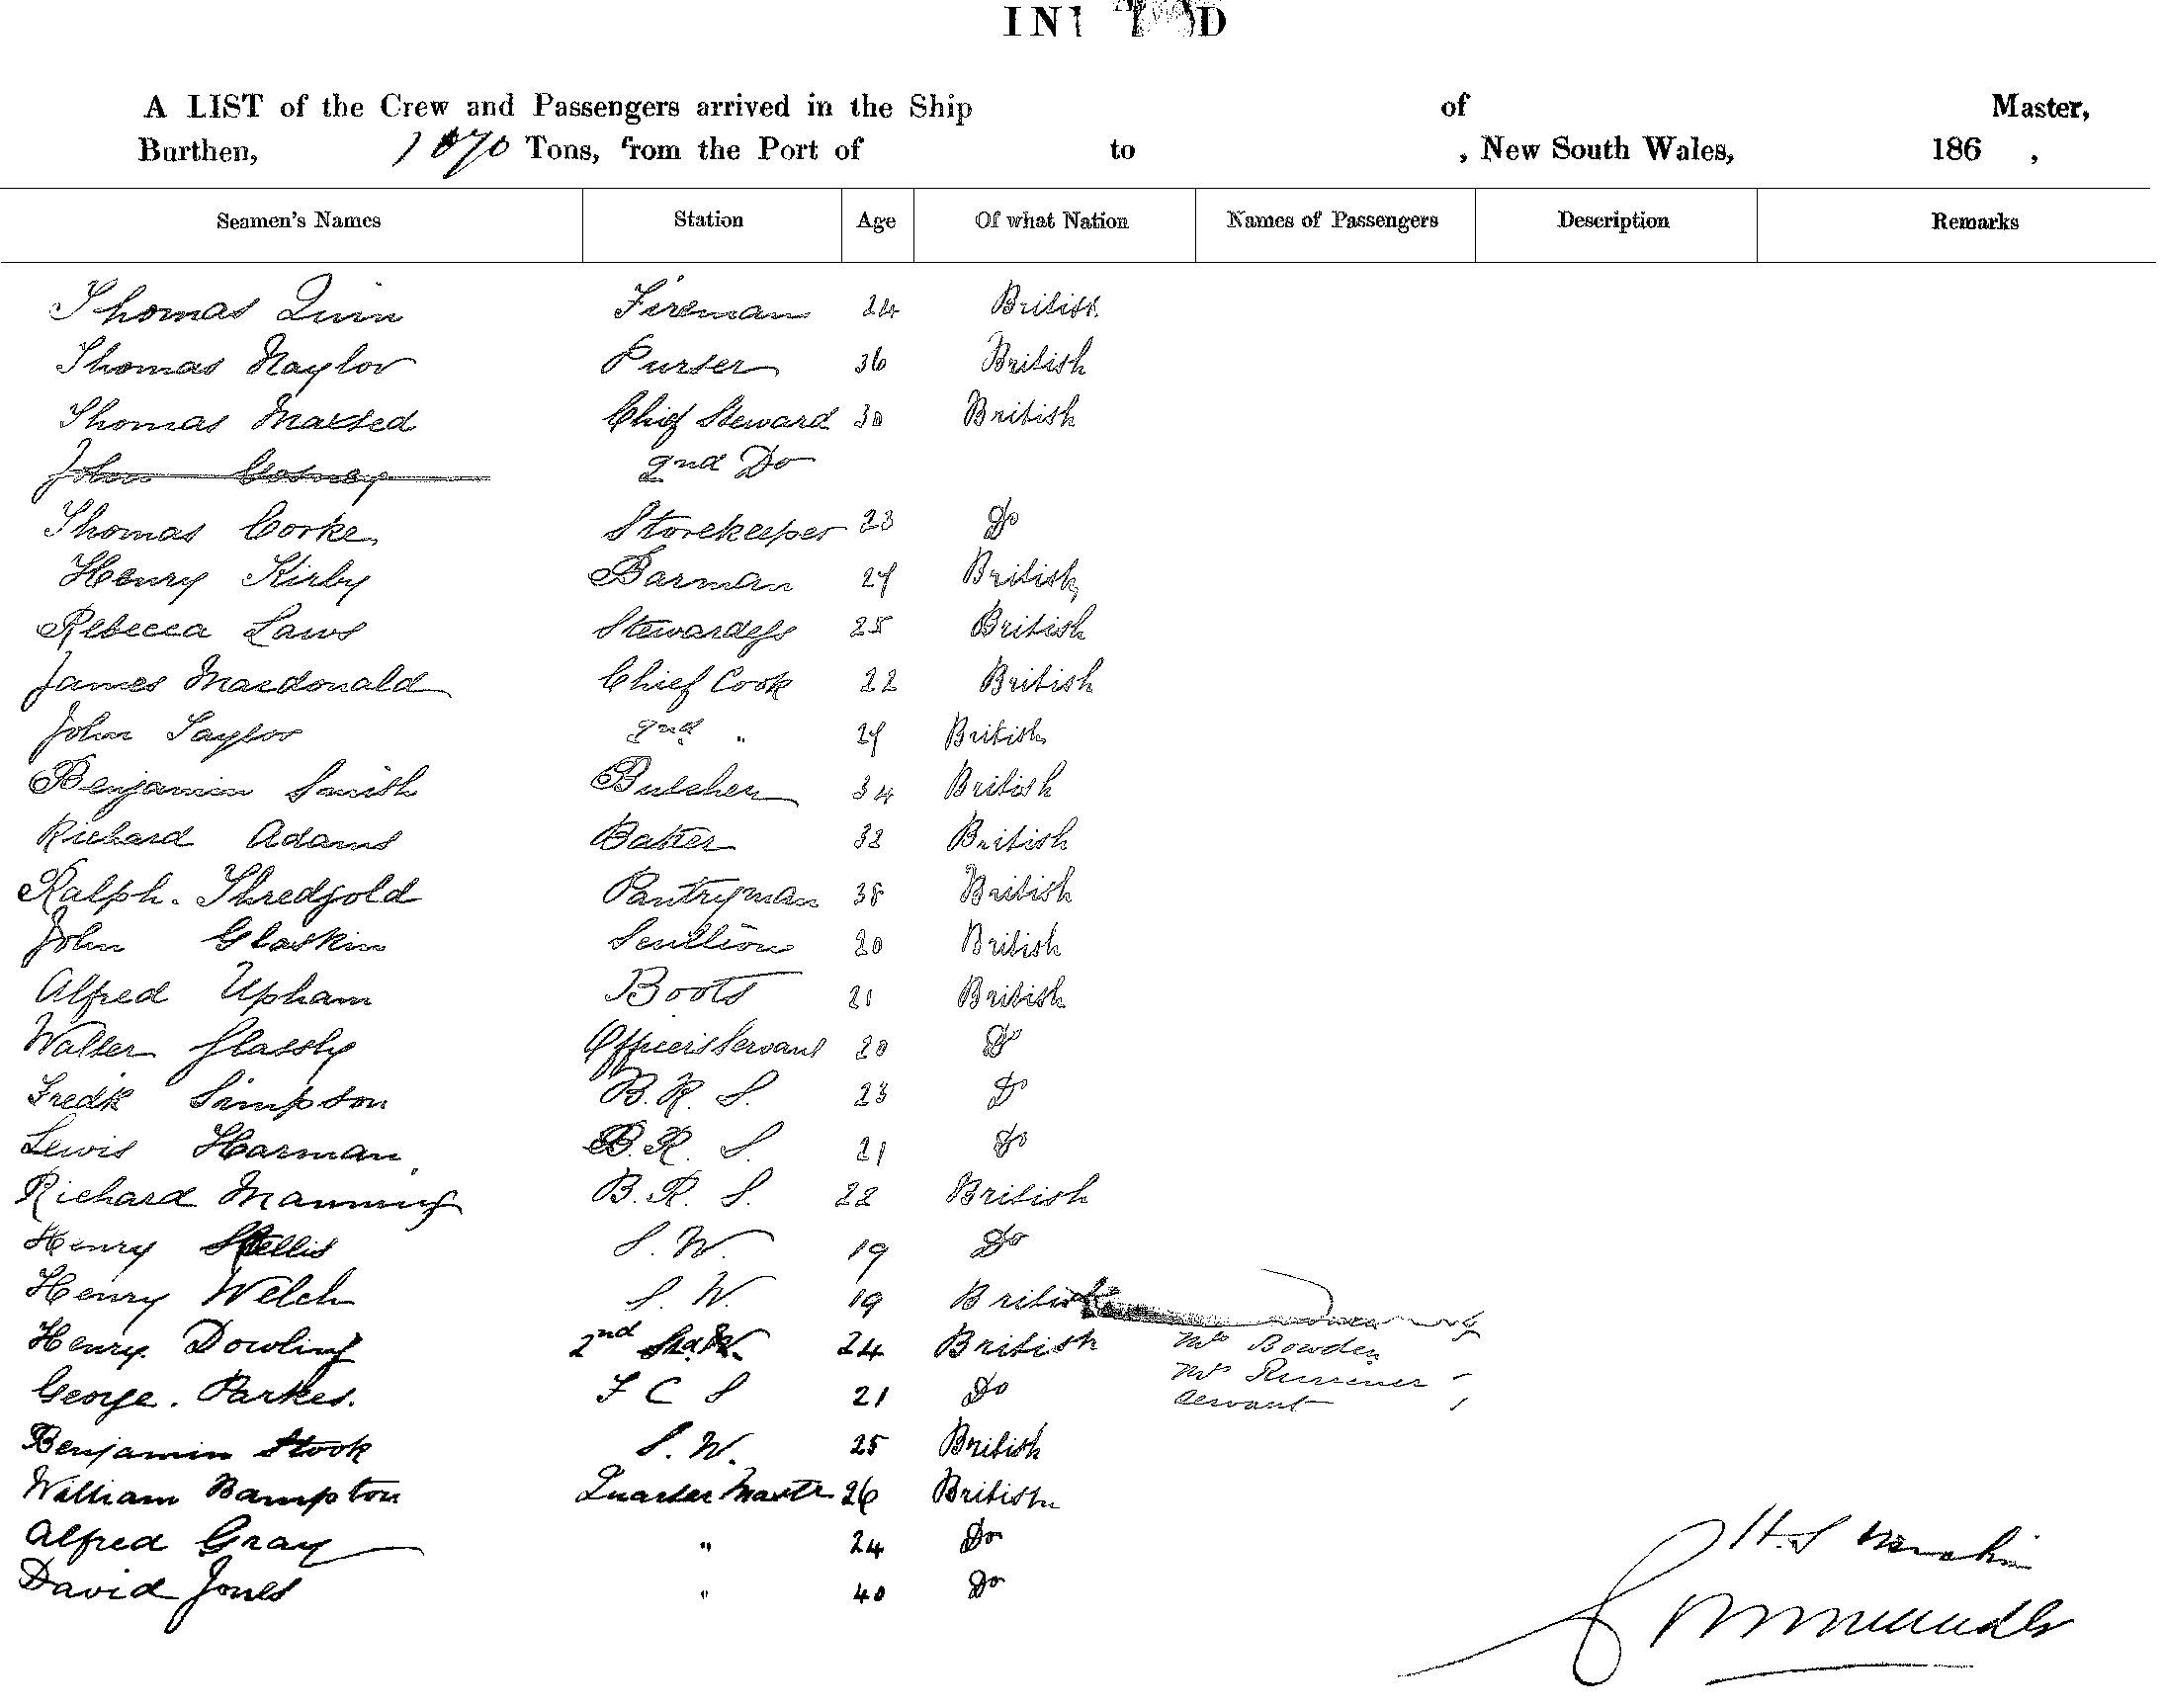 A LIST of the Crew and Passengers arrived in the Ship of Master,
Burthen, Tons, from the Port of to , New South Wales, 186 ,
Seamen's Names Station Age Of what Nation Names of Passengers Description Remarks
Thomas Quin Fireman 24 British
Thomas Naylor Purser 36 British
Thomas Maxted Chief Steward 30 British
John 2nd Do
Thomas Corke Storekeeper 23 Do
Henry Kirby Barman 24 British
Rebecca Laws Stewardess 25 British
James Macdonald Chief Cook 22 British
John Taylor 2nd " 24 British
Benjamin Smith Butcher 34 British
Richard Adams Baker 32 British
Ralph. Thredgold Pantryman 38 British
John Glaskin Scullion 20 British
Alfred Upham Boots 21 British
Walter Glassby Officers Servant 20 Do
Fredk Simpson B. R. S. 23 Do
Lewis Harman B. R. S. 21 Do
Richard Manning B. R. S. 22 British
Henry S. W. 19 Do
Henry Welch S. W. 19 British
Henry Dowling 2nd 24 British Mrs Bowden
George. Parkes. F C S 21 Do Mrs
Servant
Benjamin Stook S. W. 25 British
William Bampton Quarter Master 26 British
Alfred Gray " 24 Do
David Jones " 40 Do
H. S